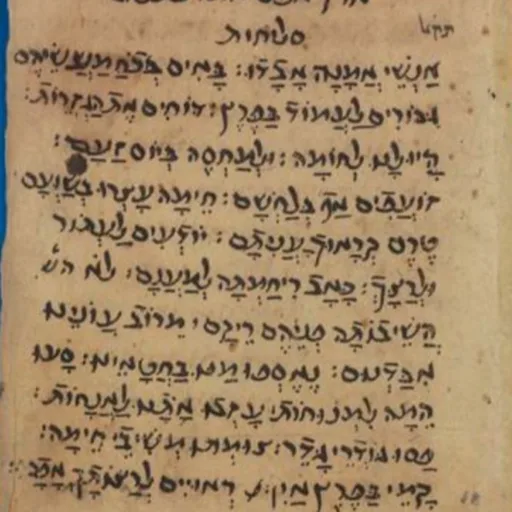 סליחות
אַנְשֵׁי אֲמָנָה אָבָדוּ: בָּאִים בְּכֹחַ מַעֲשֵׂיהֶם
גיבורים לַעֲמוֹד בַּפֶּרֶץ: דוחים אֶת הַגְּזֵרוֹת:
הָיוּ לָנוּ לְחוֹמָה: וּלְמַחֲסֶה בְּיוֹם זַעַם:
זוֹעֲכִים אַף בְּלַחְשָׁם: חֵימָה עָצְרוּ בְּשַׁוְעָם
טֶרֶם קְרָאוּךָ עֲנִיתָם: יוֹדְעִים לַעְתּוֹר
וּלְרַצֶּךָ: כְּאָב רִיחַמְתָּה לְמַעֲנָם: לֹא הש
הֱשִׁיבוֹתָה פְּנֵיהֶם רֵיקָם: מֵרוֹב עֲוֹונֵינוּ
אִבַּדְנוּם: נֶאֶסְפוּ מנו בַּחֲטָאֵינוּ: סָעוּ
הֵמָּה לִמְנוּחוֹת: עָזְבוּ אֹתָנוּ לַאֲנָחוֹת:
פַּסּוּ גוֹדְרֵי גָדֵר: צוּמְתוּ מְשִׁיבֵי חֵימָה:
קָמֵי בַפֶּרֶץ אַיִן: רְאוּיִים לְרַצּוֹתָךְ